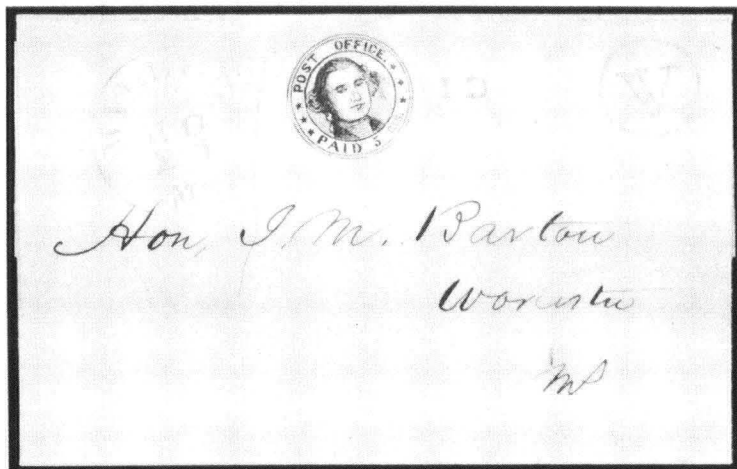 POST OFFICE. PAID 5
Hon, I. M. Barton
Worcester
Ms